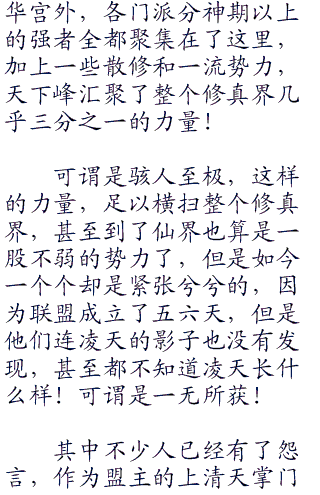 华宫外，各门派分神期以上
的强者全都聚集在了这里，
加上一些散修和一流势力，
天下峰汇聚了整个修真界几
乎三分之一的力量！
可谓是骇人至极，这样
的力量，足以横扫整个修真
界，甚至到了仙界也算是一
股不弱的势力了，但是如今
一个个却是紧张兮兮的，因
为联盟成立了五六天，但是
他们连凌天的影子也没有发
现，甚至都不知道凌天长什
么样！可谓是一无所获！
其中不少人已经有了怨
言，作为盟主的上清天掌门